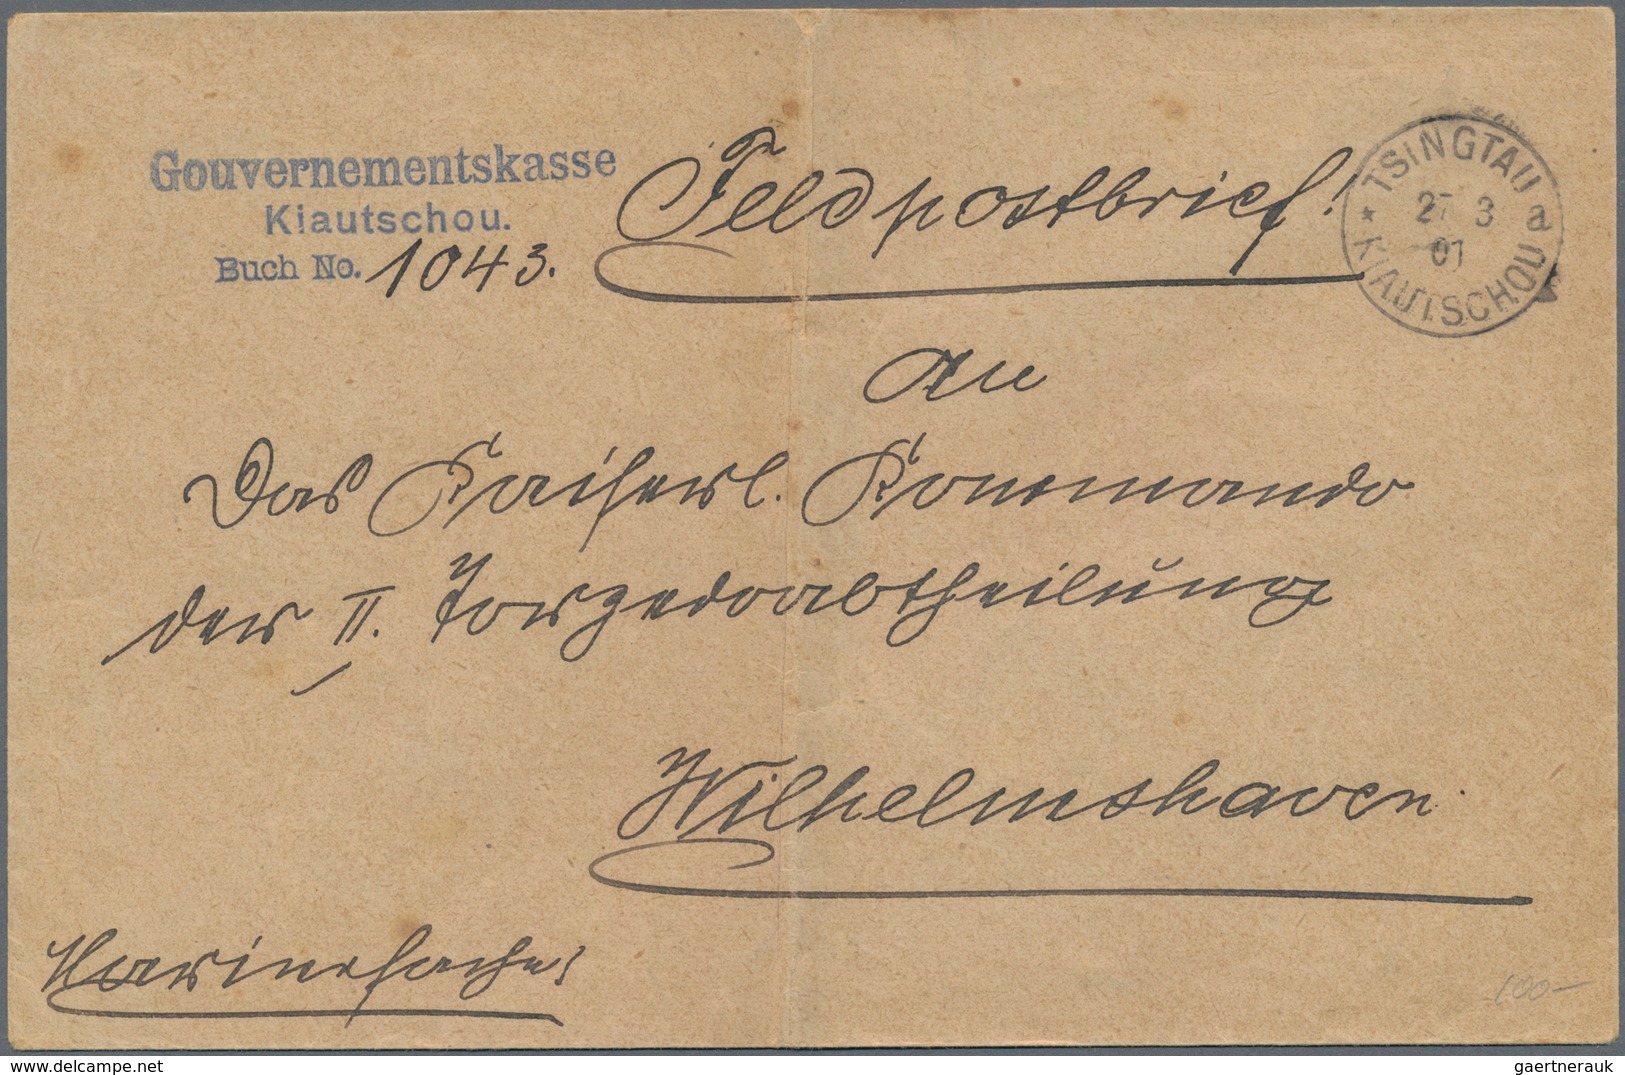 Gouvernementskasse
Kiautschou.
Buch No. 1043.
Feldpostbrief!
TSINGTAU a
27 3
01
* KIAUTSCHOU
An
Das Kaiserl. Kommando
der II. Torpedoabtheilung
Wilhelmshaven.
Marinesache!
100-
gaertnerauk